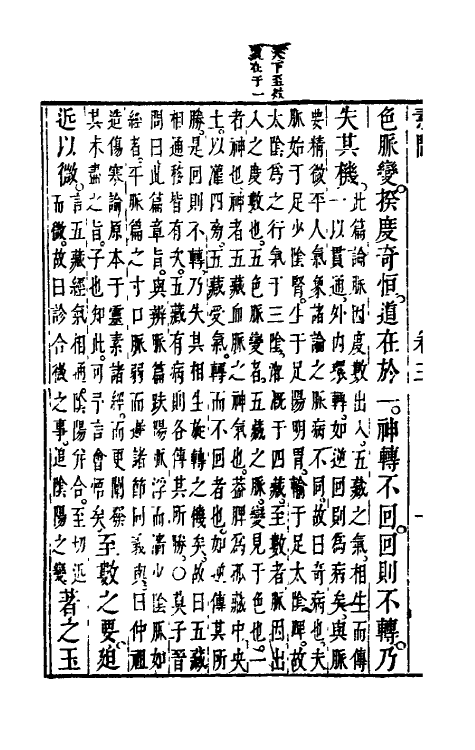 天下至数
在于一
色脈變。揆度奇恒。道在於一。神轉不回。回則不轉。乃
失其機。
此篇論脈因度數出入。五藏之氣。相生而傳
一以貫通。外內環轉。如逆回則為病矣。與脈
要精微平人氣象諸論之脈病不同。故曰奇病也。夫
脈始于足少陰腎。生于足陽明胃。輸于足太陰脾。故
太陰為之行氣于三陰。概于四藏。至數者。脈因出
入之度數也。五色脈變者。五藏之脈。變見于色也。一
者神也。神者五藏血脈之神氣也。蓋脾為孤藏。中央
土。以灌四旁。五藏受氣。轉而不回者也。如逆傳其所
勝。是回則不轉。乃失其相生旋轉之機矣。故曰五藏
相通。移皆有次。五藏有病。則各傳其所勝。○莫子晉
問曰。此篇章旨。與辨脈篇趺陽脈浮而濇少陰脈如
經者。平脈篇之寸口脈弱而遲諸節同義與。曰仲祖
造傷寒論。原本于靈素諸經。而更闡發
其未盡之旨。子也知此。可予言會悟矣。
至數之要。迫
近以微。
言五藏經氣相通。陰陽分合。至切近
而微。故曰診合後之事。追陰陽之變
著之玉